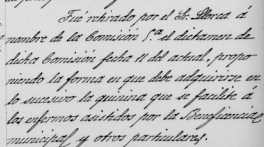 Fué retirado por el Sr. Llorca á
nombre de la Comisión 5.ª el dictamen de
dicha Comisión fecha 11 del actual, propo
niendo la forma en que debe adquirirse en
lo sucesivo la quinina que se facilite á
los enfermos asistidos por la Beneficencia
municipal y otros particulares.